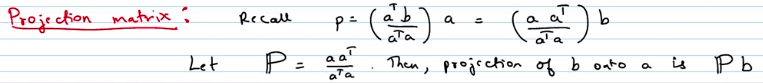 Projection matrix : Recall p = (aᵀb / aᵀa) a = (a aᵀ / aᵀa) b
Let ℙ = aaᵀ / aᵀa . Then, projection of b onto a is ℙb